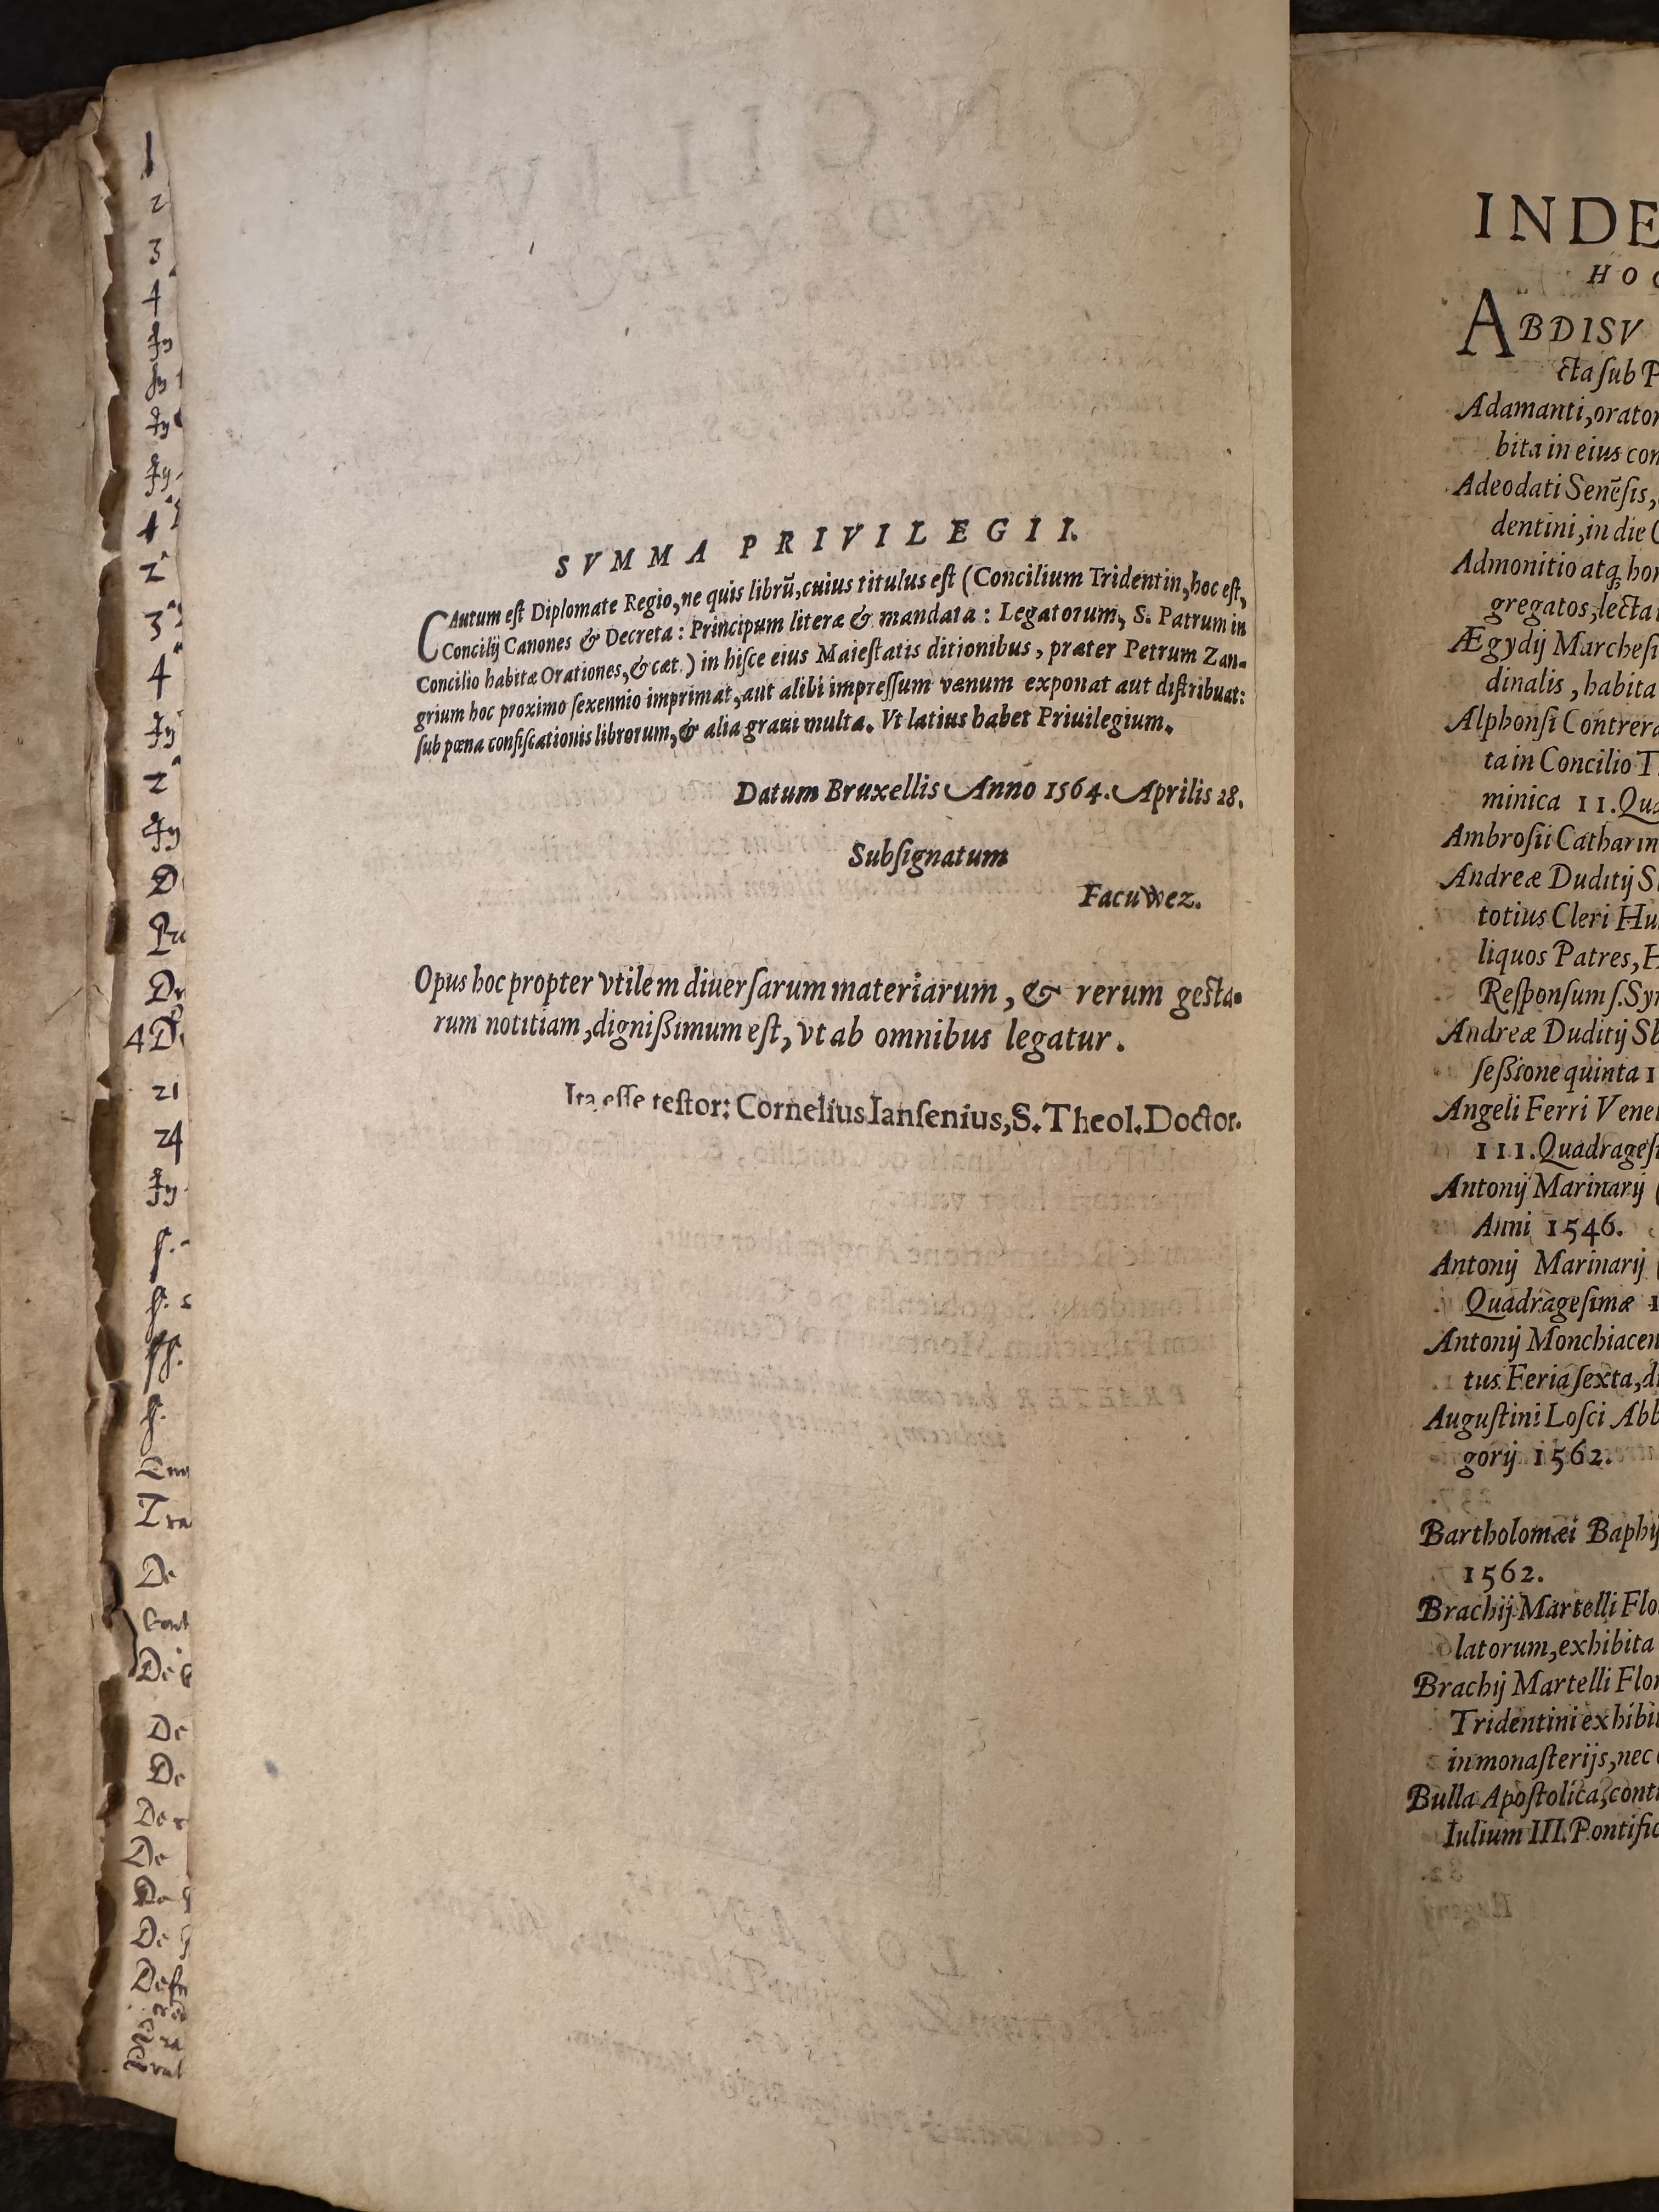 SVMMA PRIVILEGII.
CAutum est Diplomate Regio, ne quis librũ, cuius titulus est (Concilium Tridentin, hoc est,
Concilij Canones & Decreta: Principum literæ & mandata: Legatorum, S. Patrum in
Concilio habitæ Orationes, & cæt.) in hisce eius Maiestatis ditionibus, præter Petrum Zan-
grium hoc proximo sexennio imprimat, aut alibi impressum venum exponat aut distribuat:
sub pœna confiscationis librorum, & alia graui multa. Vt latius habet Priuilegium.
Datum Bruxellis Anno 1564. Aprilis 28.
Subsignatum
Facuwez.
Opus hoc propter vtilem diuersarum materiarum, & rerum gesta-
rum notitiam, dignißimum est, vt ab omnibus legatur.
Ita esse testor: Cornelius Iansenius, S. Theol. Doctor.
1
2
3
4
4
2
3
4
2
D
4D
21
24
De
De
De
De
De
De
INDE
HOC
ABDISV
cta sub P
Adamanti, orator
bita in eius con
Adeodati Senẽsis,
dentini, in die C
Admonitio atq; hor
gregatos, lecta
Ægydij Marchesi
dinalis, habita
Alphonsi Contrera
ta in Concilio T
minica 11. Qua
Ambrosii Catharin
Andreæ Duditij S
totius Cleri Hu
liquos Patres, H
Responsum s. Syn
Andreæ Duditij Sb
seßione quinta 1
Angeli Ferri Vene
111. Quadrages
Antonij Marinarij
Anni 1546.
Antonij Marinarij
Quadragesimæ 1
Antonij Monchiacen
tus Feria sexta, di
Augustini Losci Abb
gorij 1562.
Bartholomæi Baphij
1562.
Brachij Martelli Flo
latorum, exhibita
Brachij Martelli Flor
Tridentini exhibit
in monasterijs, nec
Bulla Apostolica, conti
Iulium III. Pontific